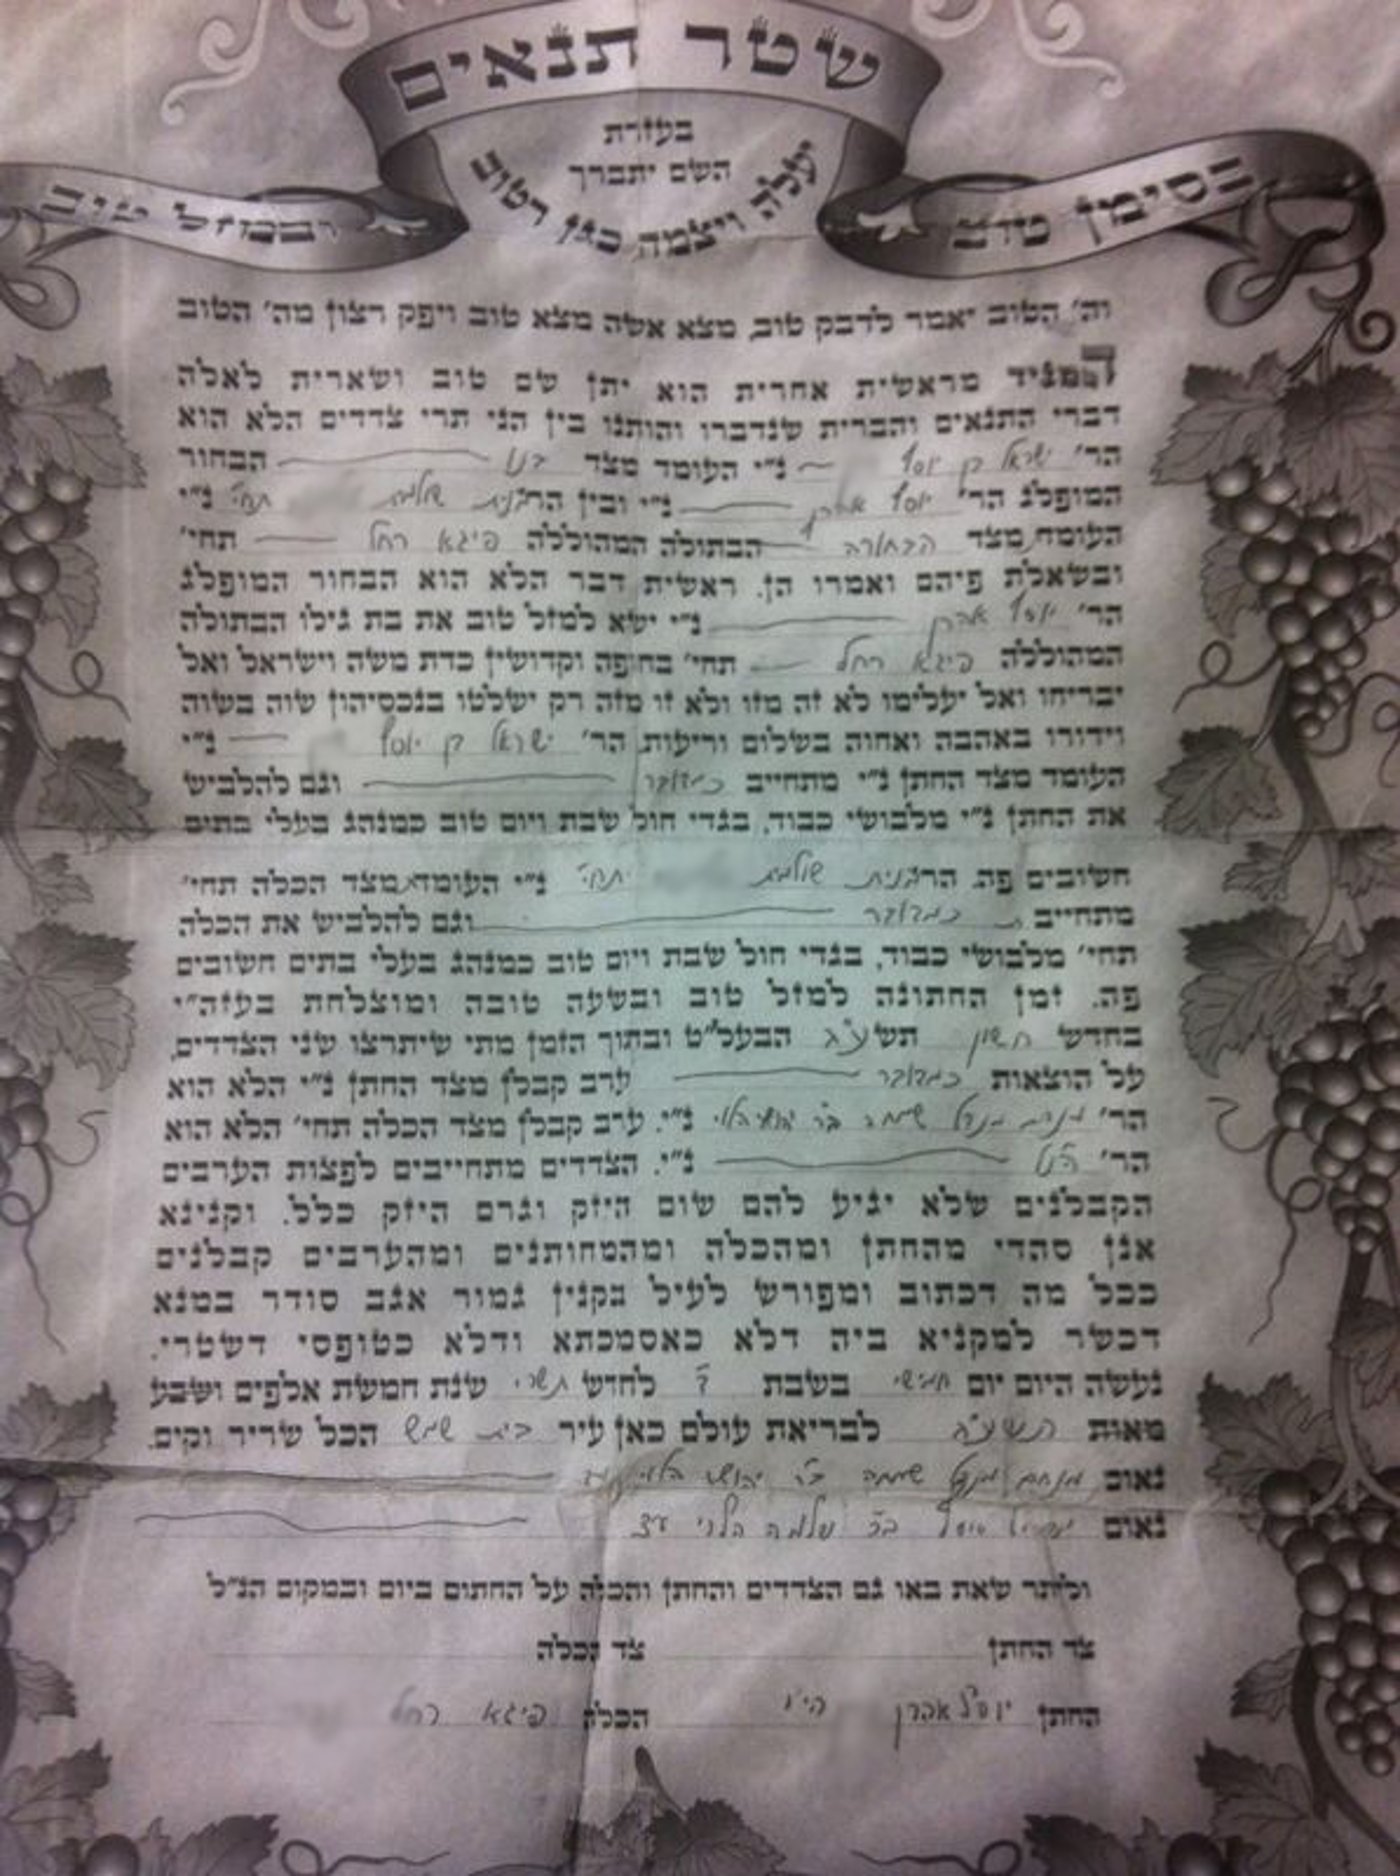 שטר תנאים
בעזרת
השם יתברך
יעלה ויצמח כגן רטוב
בסימן טוב
ובמזל טוב
וה׳ הטוב יאמר לדבק טוב, מצא אשה מצא טוב ויפק רצון מה׳ הטוב
המגיד מראשית אחרית הוא יתן שם טוב ושארית לאלה
דברי התנאים והברית שנדברו והותנו בין הני תרי צדדים הלא הוא
הר׳ ישראל בן יוסף נ״י העומד מצד בנו הבחור
המופלג הר׳ יוסף אהרן נ״י ובין הרבנית שולמית תחי׳ נ״י
העומדת מצד הבחורה הבתולה המהוללה פיגא רחל תחי׳
ובשאלת פיהם ואמרו הן. ראשית דבר הלא הוא הבחור המופלג
הר׳ יוסף אהרן נ״י ישא למזל טוב את בת גילו הבתולה
המהוללה פיגא רחל תחי׳ בחופה וקדושין כדת משה וישראל ואל
יבריחו ואל יעלימו לא זה מזו ולא זו מזה רק ישלטו בנכסיהון שוה בשוה
וידורו באהבה ואחוה בשלום וריעות. הר׳ ישראל בן יוסף נ״י
העומד מצד החתן נ״י מתחייב כמדובר וגם להלביש
את החתן נ״י מלבושי כבוד, בגדי חול שבת ויום טוב כמנהג בעלי בתים
חשובים פה. הרבנית שולמית תחי׳ נ״י העומדת מצד הכלה תחי׳
מתחייבת כמדובר וגם להלביש את הכלה
תחי׳ מלבושי כבוד, בגדי חול שבת ויום טוב כמנהג בעלי בתים חשובים
פה. זמן החתונה למזל טוב ובשעה טובה ומוצלחת בעזה״י
בחדש חשון תשע״ב הבעל״ט ובתוך הזמן מתי שיתרצו שני הצדדים,
על הוצאות כמדובר ערב קבלן מצד החתן נ״י הלא הוא
הר׳ מנחם מנדל שמחה ב״ר יהושע הלוי נ״י. ערב קבלן מצד הכלה תחי׳ הלא הוא
הר׳ הנ״ל נ״י. הצדדים מתחייבים לפצות הערבים
הקבלנים שלא יגיע להם שום היזק וגרם היזק כלל. וקנינא
אנן סהדי מהחתן ומהכלה ומהמחותנים ומהערבים קבלנים
ככל מה דכתוב ומפורש לעיל בקנין גמור אגב סודר במנא
דכשר למקניא ביה דלא כאסמכתא ודלא כטופסי דשטרי.
נעשה היום יום חמישי בשבת ח׳ לחדש תשרי שנת חמשת אלפים ושבע
מאות תשע״ב לבריאת עולם כאן עיר בית שמש הכל שריר וקים.
נאום מנחם מנדל שמחה ב״ר יהושע הלוי
נאום ב״ר שלמה הלוי עד
וליתר שאת באו גם הצדדים והחתן והכלה על החתום ביום ובמקום הנ״ל
צד החתן צד הכלה
החתן יוסף אהרן הי״ו הכלה פיגא רחל